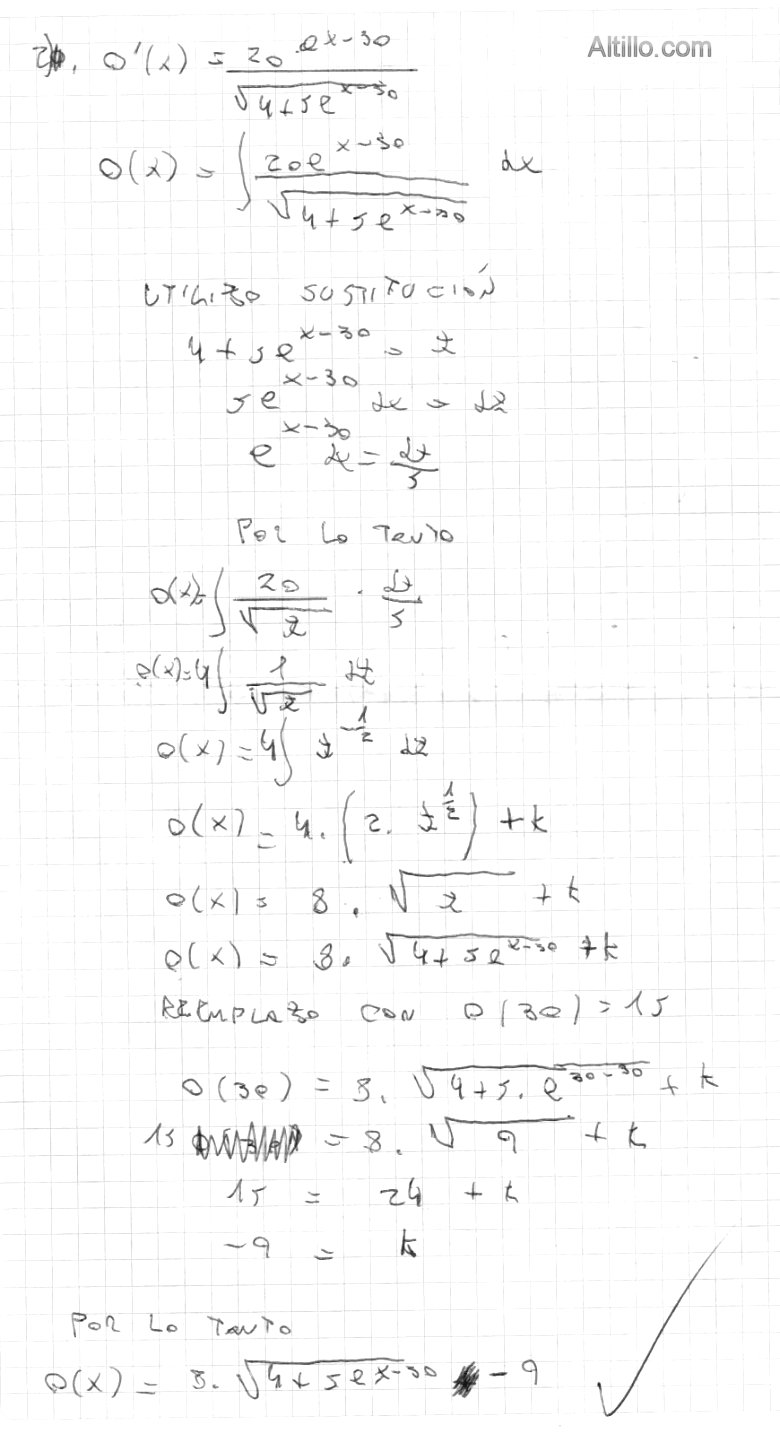 Altillo.com
2). O'(x) = 20 · e^(x-30) / √(4+5e^(x-30))
O(x) = ∫ 20e^(x-30) / √(4+5e^(x-30)) dx
UTILIZO SUSTITUCIÓN
4+5e^(x-30) = z
5e^(x-30) dx = dz
e^(x-30) dx = dz/5
POR LO TANTO
O(x)= ∫ 20/√z · dz/5
O(x)=4∫ 1/√z dz
O(x)=4∫ z^(-1/2) dz
O(x) = 4.(2. z^(1/2)) + k
O(x) = 8 . √z + k
O(x) = 8. √(4+5e^(x-30)) + k
REEMPLAZO CON O(30)=15
O(30) = 8. √(4+5.e^(30-30)) + k
15 = 8. √9 + k
15 = 24 + k
-9 = k
POR LO TANTO
O(x) = 8. √(4+5e^(x-30)) - 9